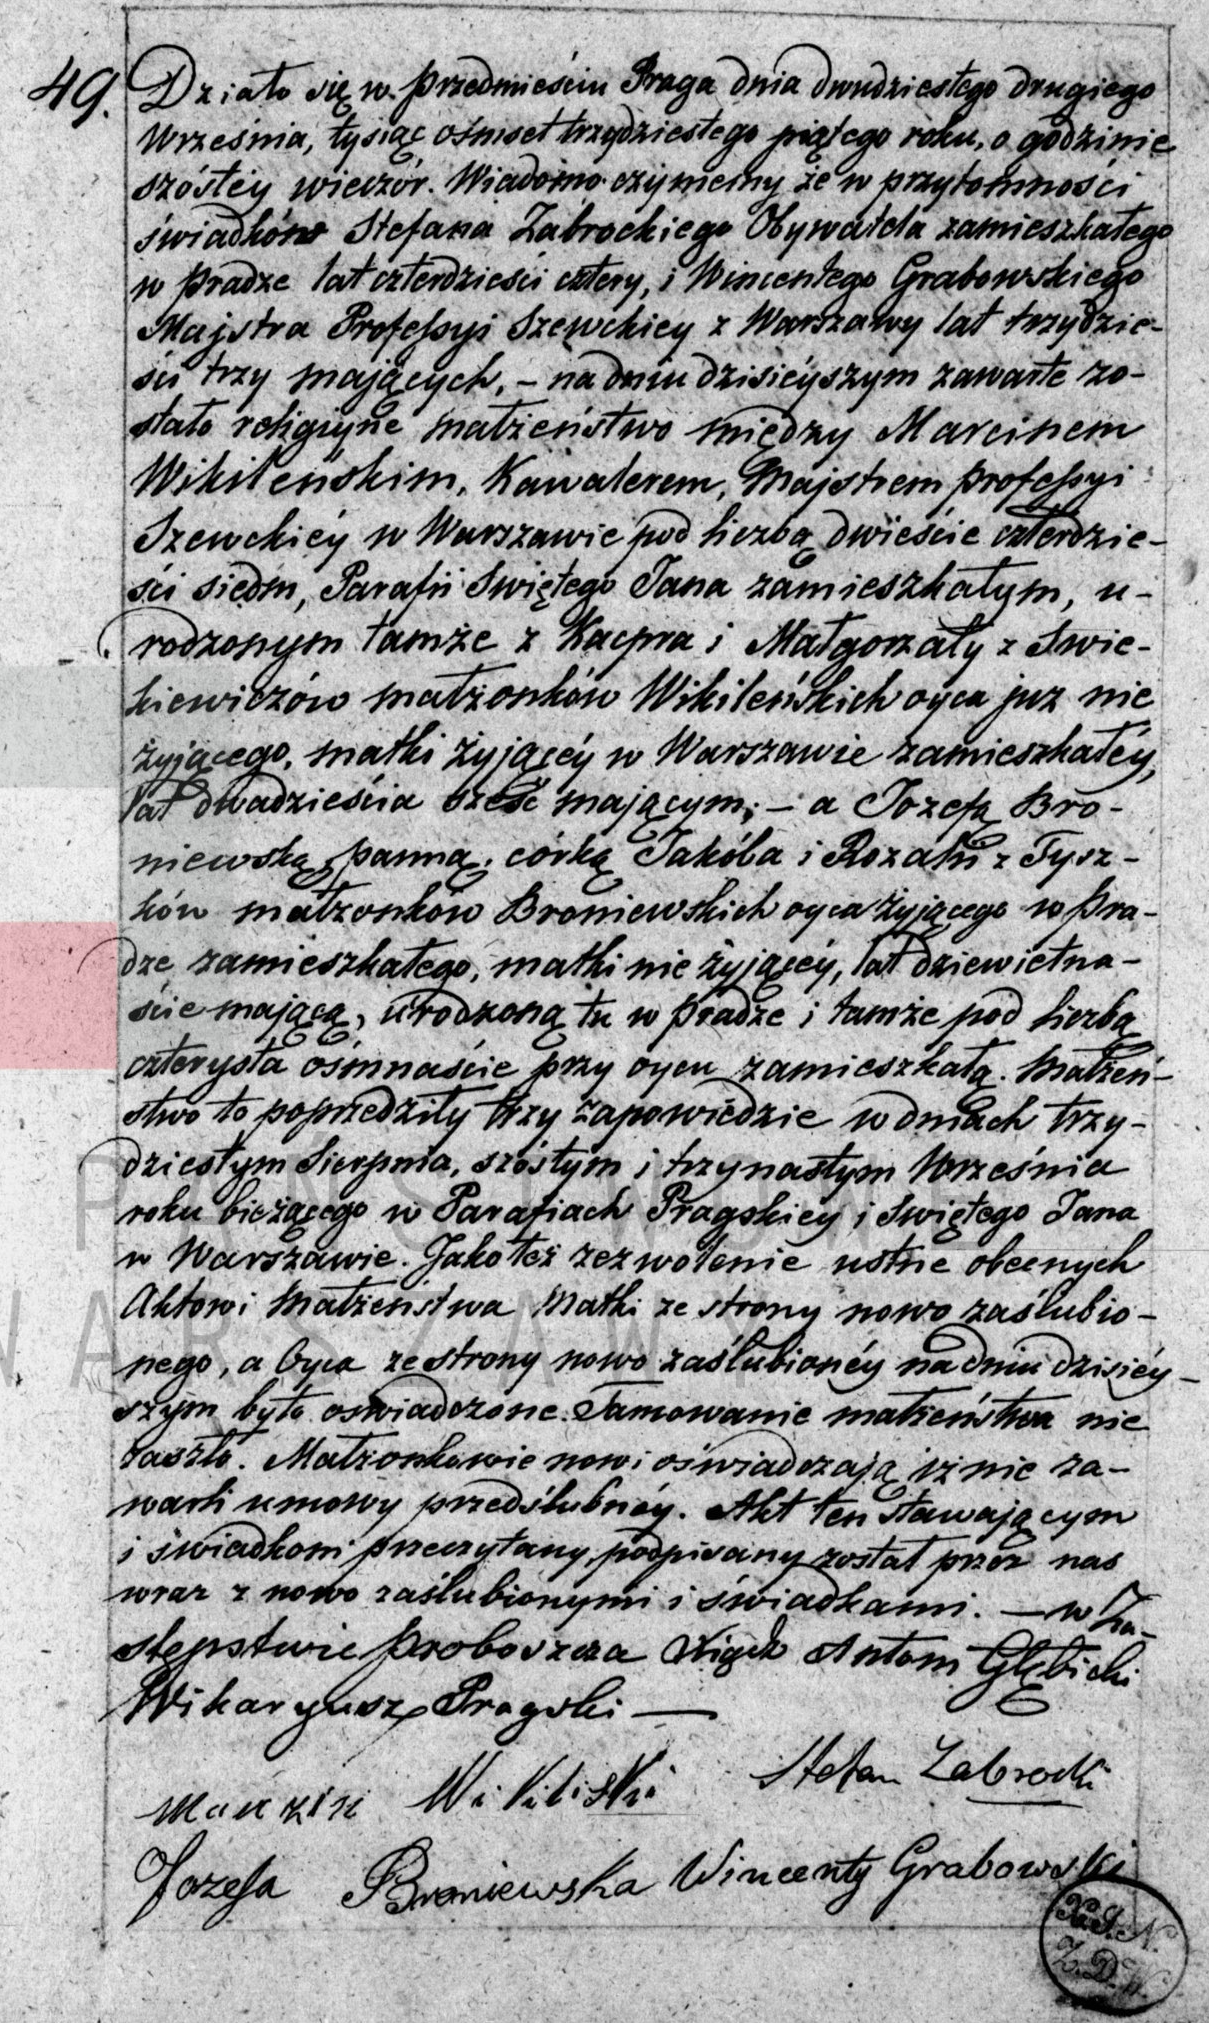 49. Działo się w przedmieściu Praga dnia dwudziestego drugiego
Września, tysiąc ośmset trzydziestego piątego roku, o godzinie
szóstéy wieczór. Wiadomo czyniemy że w przytomności
świadków Stefana Zabrockiego Obywatela zamieszkałego
w Pradze lat czterdzieści cztery, i Wincentego Grabowskiego
Majstra Professyi Szewckiey z Warszawy lat trzydzie-
ści trzy mających, – na dniu dzisieyszym zawarte zo-
stało religiyne małżeństwo między Marcinem
Wikileńskim, Kawalerem, Majstrem professyi
Szewckiéy w Warszawie pod liczbą dwieście czterdzie-
ści siedm, Parafii Swiętego Jana zamieszkałym, u-
rodzonym tamże z Kacpra i Małgorzaty z Swie-
kiewiczów małżonków Wikileńskich oyca już nie
żyjącego, matki żyjącéy w Warszawie zamieszkałéy,
lat dwadzieścia sześć mającym; – a Jozefą Bro-
niewską panną, córką Jakóba i Rozalii z Tysz-
ków małżonków Broniewskich oyca żyjącego w Pra-
dze zamieszkałego, matki nie żyjącéy, lat dziewietna-
ście mającą, urodzoną tu w Pradze i tamże pod liczbą
czterysta ośmnaście przy oycu zamieszkałą. Małżeń-
stwo to poprzedziły trzy zapowiedzie w dniach trzy-
dziestym Sierpnia, szóstym i trzynastym Września
roku bieżącego w Parafiach Pragskiey i Swiętego Jana
w Warszawie. Jako też zezwolenie ustne obecnych
Aktowi Małżeństwa Matki ze strony nowo zaślubio-
nego, a Oyca ze strony nowo zaślubionéy na dniu dzisiéy-
szym było oświadczone. Tamowanie małżeństwa nie
zaszło. Małżonkowie nowi oświadczają iż nie za-
warli umowy przedślubnéy. Akt ten stawającym
i świadkom przeczytany, podpisany został przez nas
wraz z nowo zaślubionymi i świadkami. – w Za-
stępstwie Proboszcza Xiądz Antoni Głębicki
Wikaryusz Pragski —
Marczin Wikiliski Stefan Zabrocki
Jozefa Broniewska Wincenty Grabowski
X. S. N.
Z. D. W.
PAŃSTWOWE
WARSZAWY